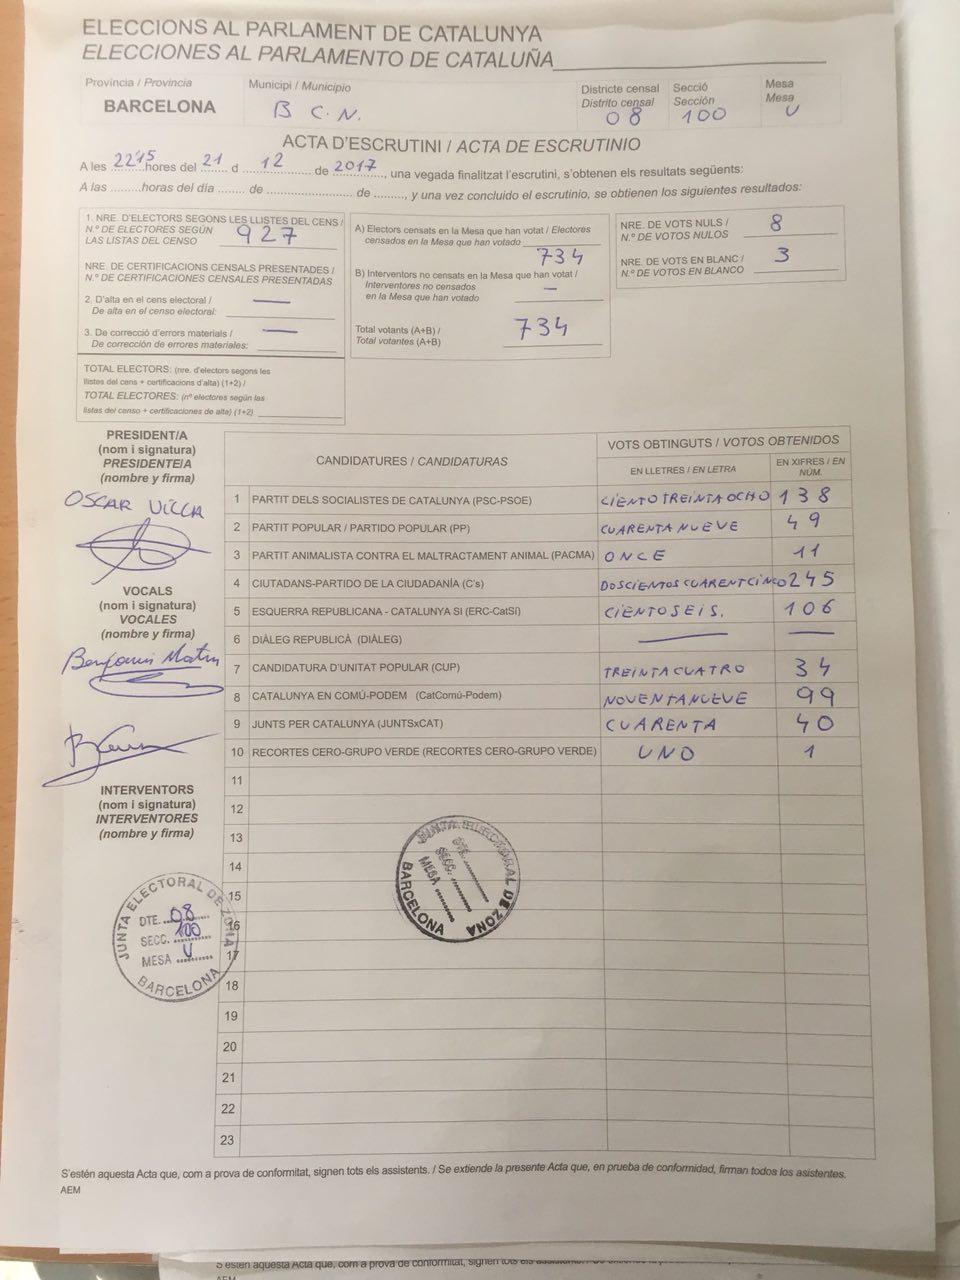 ELECCIONS AL PARLAMENT DE CATALUNYA
ELECCIONES AL PARLAMENTO DE CATALUÑA
Província / Provincia
BARCELONA
Municipi / Municipio
B C.N.
Districte censal
Distrito censal
08
Secció
Sección
100
Mesa
Mesa
U
ACTA D'ESCRUTINI / ACTA DE ESCRUTINIO
A les 22'15 hores del 21 d 12 de 2017, una vegada finalitzat l'escrutini, s'obtenen els resultats següents:
A las ......... horas del día ....... de ...................... de ........, y una vez concluido el escrutinio, se obtienen los siguientes resultados:
1. NRE. D'ELECTORS SEGONS LES LLISTES DEL CENS /
N.º DE ELECTORES SEGÚN
LAS LISTAS DEL CENSO
927
NRE. DE CERTIFICACIONS CENSALS PRESENTADES /
N.º DE CERTIFICACIONES CENSALES PRESENTADAS
2. D'alta en el cens electoral /
De alta en el censo electoral: —
3. De correcció d'errors materials /
De corrección de errores materiales: —
TOTAL ELECTORS: (nre. d'electors segons les
llistes del cens + certificacions d'alta) (1+2) /
TOTAL ELECTORES: (nº electores según las
listas del censo + certificaciones de alta) (1+2)
A) Electors censats en la Mesa que han votat / Electores
censados en la Mesa que han votado
734
B) Interventors no censats en la Mesa que han votat /
Interventores no censados
en la Mesa que han votado
—
Total votants (A+B) /
Total votantes (A+B)
734
NRE. DE VOTS NULS /
N.º DE VOTOS NULOS
8
NRE. DE VOTS EN BLANC /
N.º DE VOTOS EN BLANCO
3
PRESIDENT/A
(nom i signatura)
PRESIDENTE/A
(nombre y firma)
OSCAR
VOCALS
(nom i signatura)
VOCALES
(nombre y firma)
INTERVENTORS
(nom i signatura)
INTERVENTORES
(nombre y firma)
CANDIDATURES / CANDIDATURAS
VOTS OBTINGUTS / VOTOS OBTENIDOS
EN LLETRES / EN LETRA
EN XIFRES / EN NÚM.
1 PARTIT DELS SOCIALISTES DE CATALUNYA (PSC-PSOE) CIENTO TREINTA OCHO 138
2 PARTIT POPULAR / PARTIDO POPULAR (PP) CUARENTA NUEVE 49
3 PARTIT ANIMALISTA CONTRA EL MALTRACTAMENT ANIMAL (PACMA) ONCE 11
4 CIUTADANS-PARTIDO DE LA CIUDADANÍA (C's) DOSCIENTOS CUARENTCINCO 245
5 ESQUERRA REPUBLICANA - CATALUNYA SI (ERC-CatSí) CIENTO SEIS. 106
6 DIÀLEG REPUBLICÀ (DIÀLEG) — —
7 CANDIDATURA D'UNITAT POPULAR (CUP) TREINTA CUATRO 34
8 CATALUNYA EN COMÚ-PODEM (CatComú-Podem) NOVENTANUEVE 99
9 JUNTS PER CATALUNYA (JUNTSxCAT) CUARENTA 40
10 RECORTES CERO-GRUPO VERDE (RECORTES CERO-GRUPO VERDE) UNO 1
11
12
13
14
15
16
17
18
19
20
21
22
23
JUNTA ELECTORAL DE ZONA
DTE. 08
SECC. 100
MESA U
BARCELONA
JUNTA ELECTORAL DE ZONA
DTE.
SECC.
MESA
BARCELONA
S'estén aquesta Acta que, com a prova de conformitat, signen tots els assistents. / Se extiende la presente Acta que, en prueba de conformidad, firman todos los asistentes.
AEM
S'estén aquesta Acta que, com a prova de conformitat, signen tots els
AEM